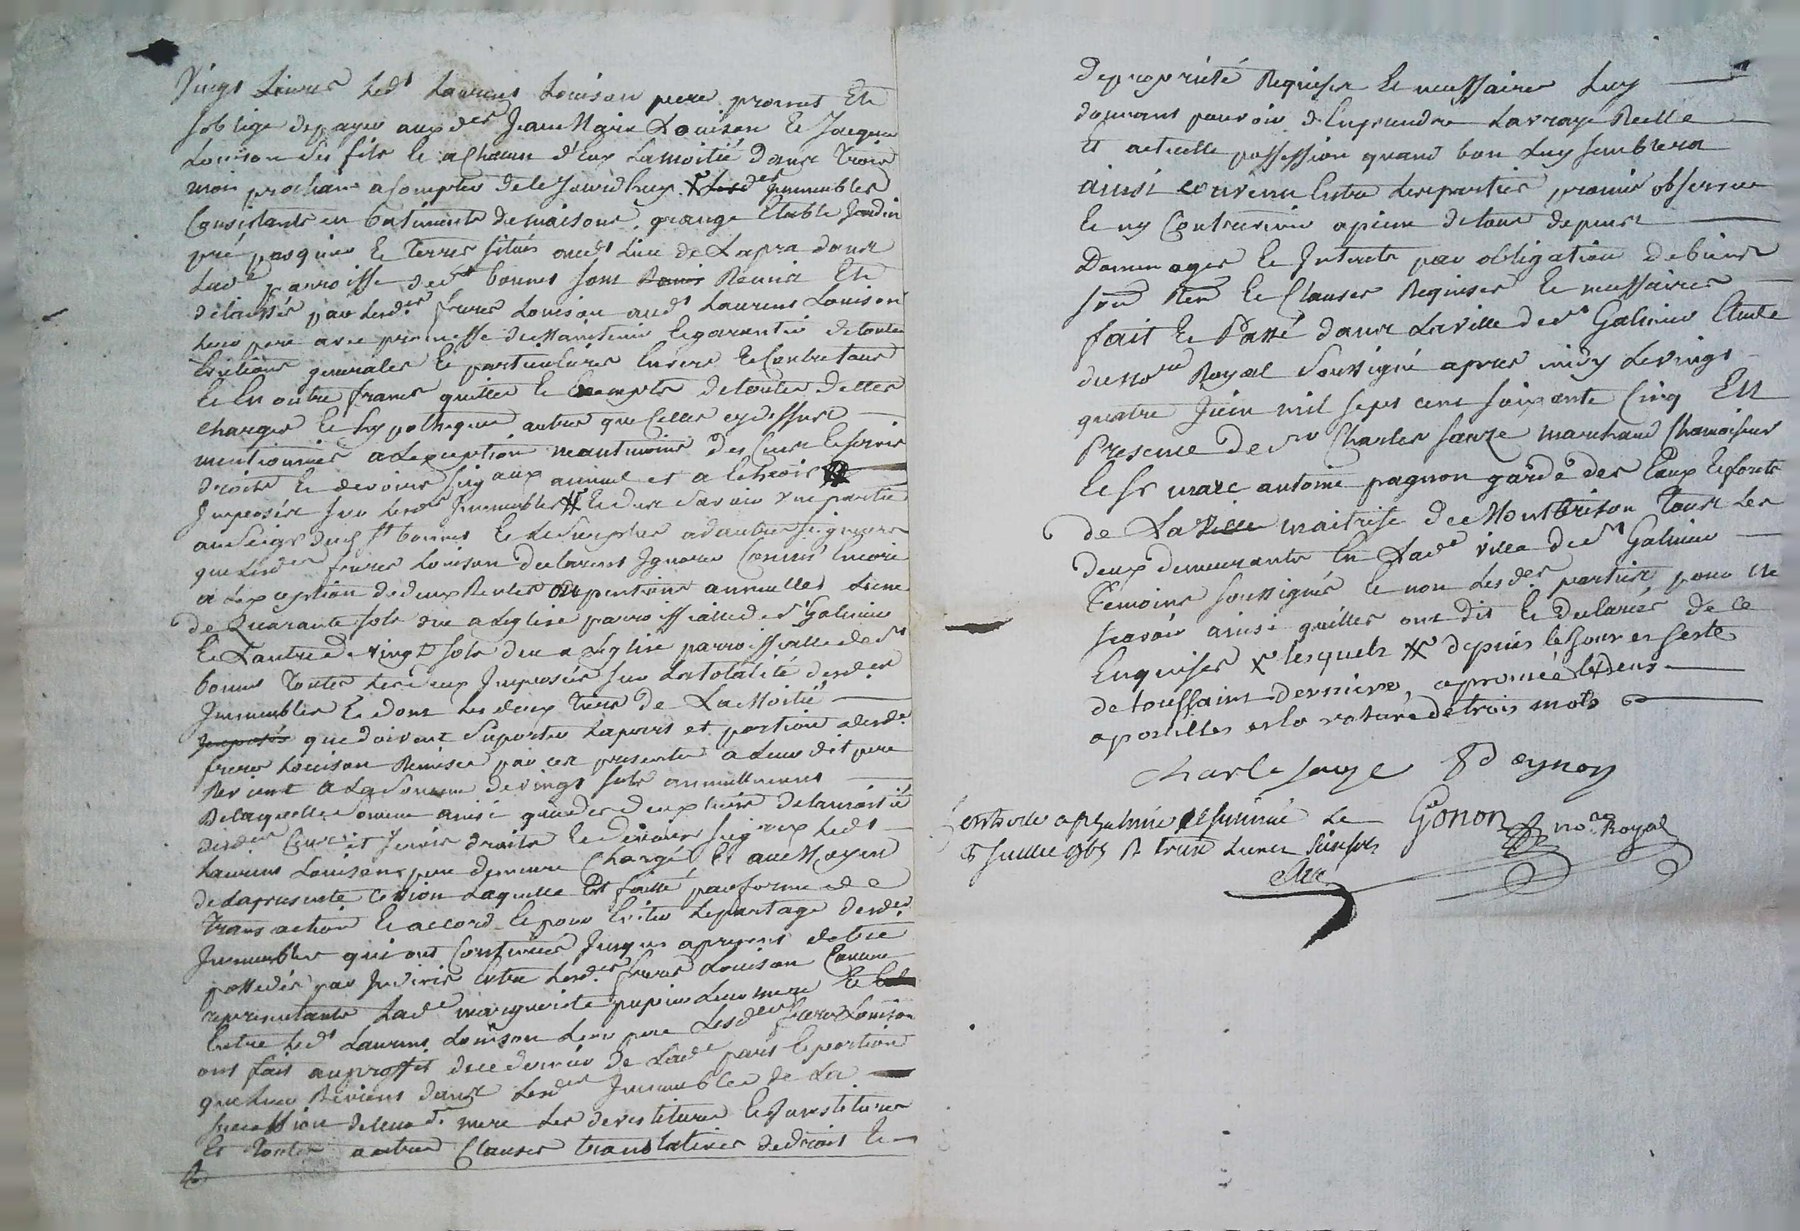 Vingt Livres Led.t Laurens Louison pere promet Et
soblige depayer auxd.es Jean Marie Louison Et Jacques
Louison ses fils Et a Chacun d'Eux Lamoitié dans Trois
mois prochains a Compter dece Jourdhuy. Lesd.es Jmmeubles
Consistants en batiments demaisons, grange Etable Jardin
pré pasquier Et Terres situés aud.t Lieu de Lapra dans
Lad.e parroisse de s.t bonnet sont Remis Et
délaissés par Lesd.es freres Louison aud.t Laurens Louison
Leur pere avec promesse de Maintenir Et garantir de toutes
Evictions generales Et particulieres Envers Et Contre tous
Et En outre francs quittes Et Exempts de toutes dettes
charges Et hypotheques autres que Celles cydessus
mentionnées a Lexception neantmoins des Cens Et servis
droits Et devoirs seig.aux annuel et a Echeoir
Jmposés sur Lesd.s Jmmeubles Et dus savoir une partie
au Seig.r dud. s.t bonnet Et Lesurplus a dautres seigneurs
que Lesd.es freres Louison declarent Ignorer Comme Encore
a Lexception de deux Rentes ou pensions annuelles Lune
de Quarante sols due a Leglise parroissialle de s.t Galmier
Et Lautre de vingt sols due a Leglise parroissialle de s.t
bonnet Toutes Les deux Jmposées sur La totalité desd.es
Jmmeubles Et dont Les deux Tiers de La Moitié
que doivent suporter La part et portion desd.s
freres Louison Remise par ces presentes a Leur dit pere
Revient a La Somme de vingt sols annuellement
De laquelle Somme ainsi que des deux tiers de la moitié
desd.es Cens et servis droits Et devoirs seig.aux Led.t
Laurens Louison pere demeure Chargé Et au Moyen
de la presente Cession Laquelle Est faitte par forme de
Transaction Et accord Et pour Eviter Le partage desd.es
Jmmeubles qui ont Continués Jusques apresent detre
possedés par Jndivis Entre Lesd.es freres Louison Comme
representants Lad.e marguerite pupier Leur mere Et
Entre Led.t Laurens Louison Leur pere Lesd.es freres Louison
ont fait au proffit de ce dernier de Lad.e part Et portion
que Leur Revient dans Lesd.es Jmmeubles de La
succession de Leurd.e mere Les devestitures Et Jnvestitures
Et Toutes autres Clauses translatives de droits Et
de propriété Requises Et necessaires Luy
donnant pouvoir d'En prendre La vraye Reelle
et actuelle possession quand bon Luy semblera
ainsi convenu Entre Les parties promis observer
Et ny Contrevenir a peine de tous depens
Dommages Et Jnterets par obligation de biens
soum Ren Et Clauses Requises Et necessaires
fait Et Passé dans La ville de s.t Galmier Etude
du no.re Royal Soussigné apres midy Le vingt
quatre Juin mil sept cent soixante Cinq En
Presence de s.r Charles sauze marchand Chamoiseur
Et sr marc antoine pagnon garde des Eaux Et forets
de La maitrise de Montbrison Tous Les
deux demeurants En Lad.e ville de s.t Galmier
Temoins soussignés Et non Lesd.es parties pour ne
scavoir ainsi quelles ont dit Et declarés de ce
Enquises lesquels depuis le jour et feste
de toussaint derniere, aprouvé les deux
apostilles et la rature de trois mots
Charle sauze
Gonon no.re Royal
Controllé a St Galmie Le
5 Juillet 1765 R treize Livres